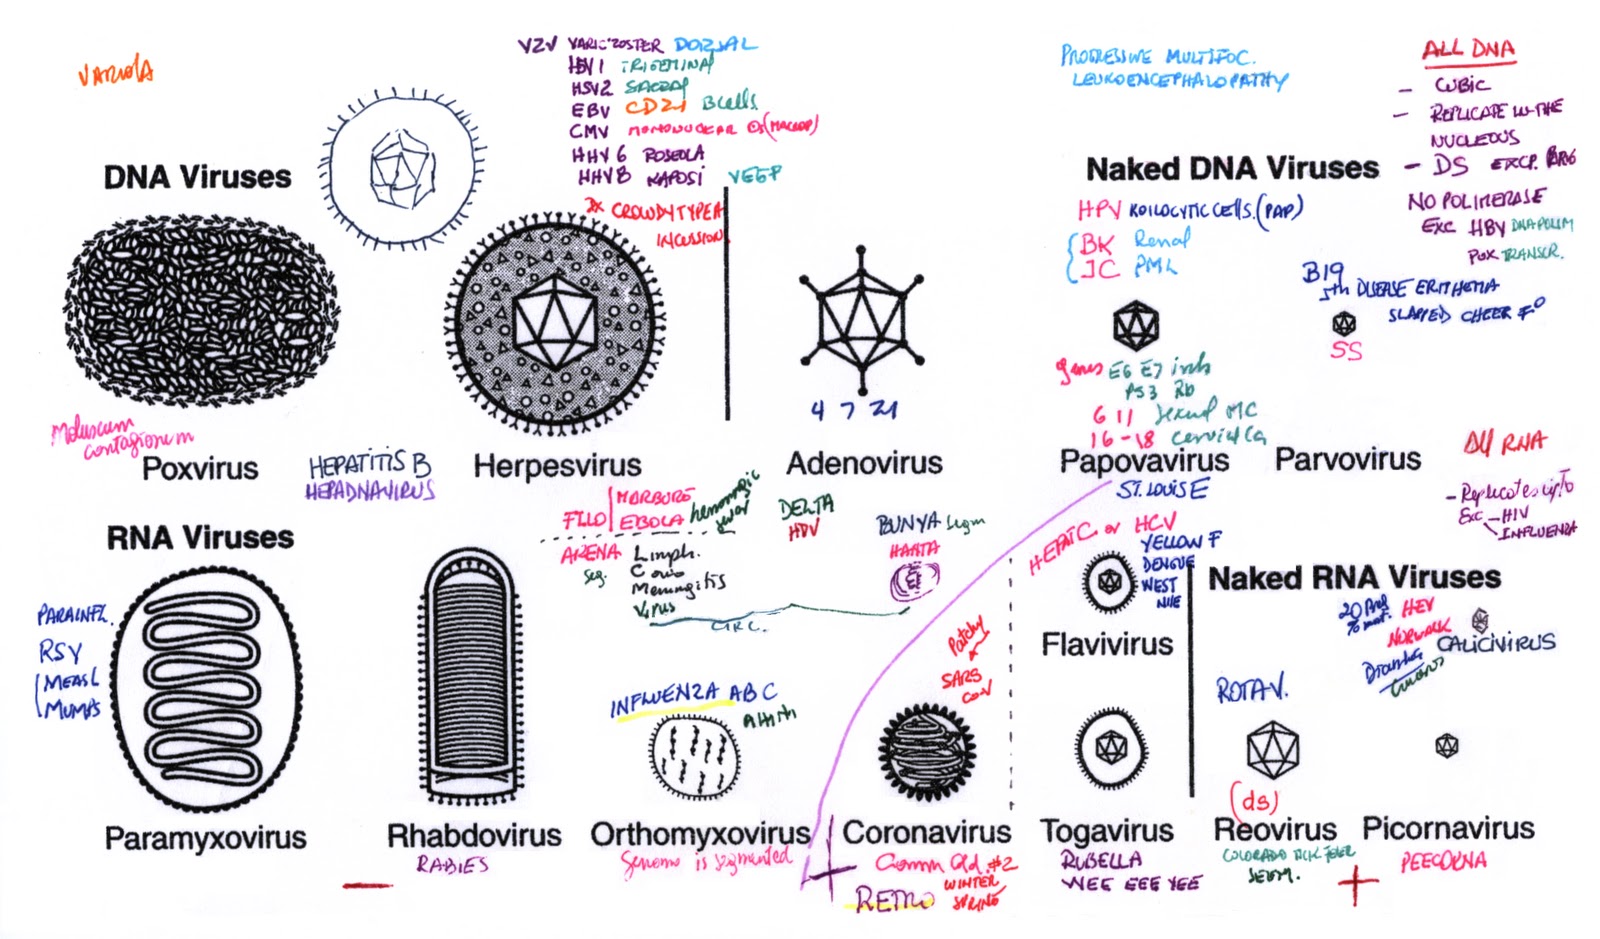 VARIOLA
VZV VARIC ZOSTER DORSAL
HSV1 TRIGEMINAL
HSV2 SACRAL
EBV CD21 B Cells
CMV MONONUCLEAR (MACROP)
HHV 6 ROSEOLA
HHV8 KAPOSI VEGF
DX CROWDY TYPE A
INCLUSION
PROGRESSIVE MULTIFOC.
LEUKOENCEPHALOPATHY
ALL DNA
- CUBIC
- REPLICATE IN THE
NUCLEOUS
- DS EXCP.
NO POLIMERASE
EXC HBV DNA POLIM
POX TRANSCR.
DNA Viruses
Naked DNA Viruses
HPV KOILOCYTIC CELLS. (PAP)
BK Renal
JC PML
B19
5th DISEASE ERITHEMA
SLAPPED CHEEK
SS
genes E6 E7
P53 Rb
6 11 Sexual
16-18 Cervical Ca
4 7 21
Moluscum
contagiosum
Poxvirus
HEPATITIS B
HEPADNAVIRUS
Herpesvirus
Adenovirus
Papovavirus
Parvovirus
ALL RNA
- Replicates
Exc - HIV
INFLUENZA
RNA Viruses
FILO MARBURG
EBOLA hemorragic
fever
ARENA Limph.
seg. Corio
Meningitis
Virus
CIRC.
DELTA
HDV
BUNYA segm
HANTA
ST. LOUIS E
HEPATIC or HCV
YELLOW F
DENGUE
WEST
NILE
Flavivirus
Naked RNA Viruses
HEV
NORWALK
CALICIVIRUS
Diarrhea
ROTAV.
PARAINFL.
RSV
MEASL
MUMPS
INFLUENZA ABC
Patchy
SARS
COV
(ds)
Paramyxovirus
Rhabdovirus
RABIES
Orthomyxovirus
Genome is segmented
Coronavirus
Common Cold #2
WINTER
SPRING
RETRO
Togavirus
RUBELLA
WEE EEE VEE
Reovirus
COLORADO TICK FEVER
SEGM.
Picornavirus
PEECORNA